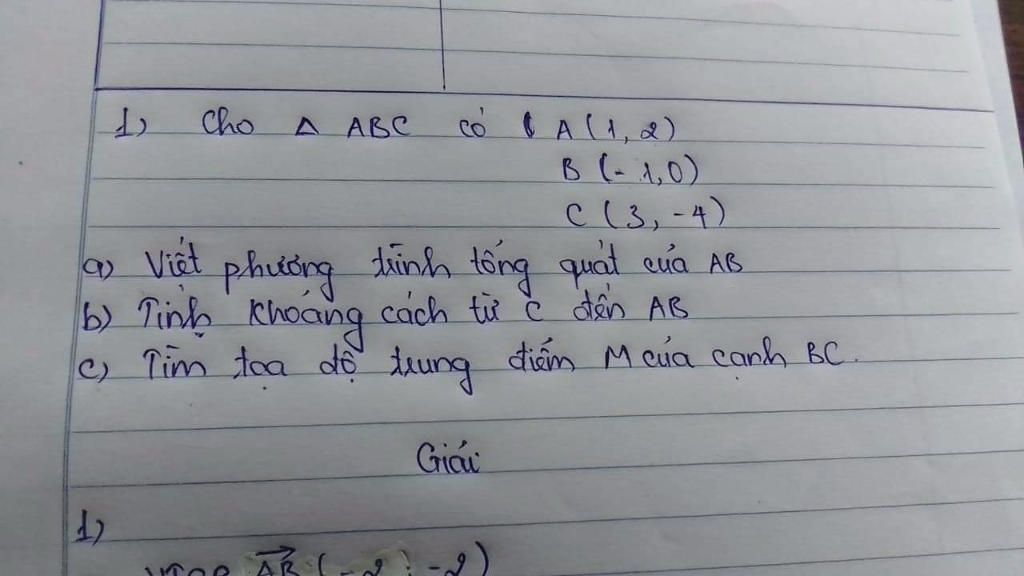 1) Cho Δ ABC có A (1, 2)
B (-1, 0)
C (3, -4)
a) Viết phương trình tổng quát của AB
b) Tính khoảng cách từ C đến AB
c) Tìm tọa độ trung điểm M của cạnh BC.
Giải
1)
VTCP AB (-2; -2)